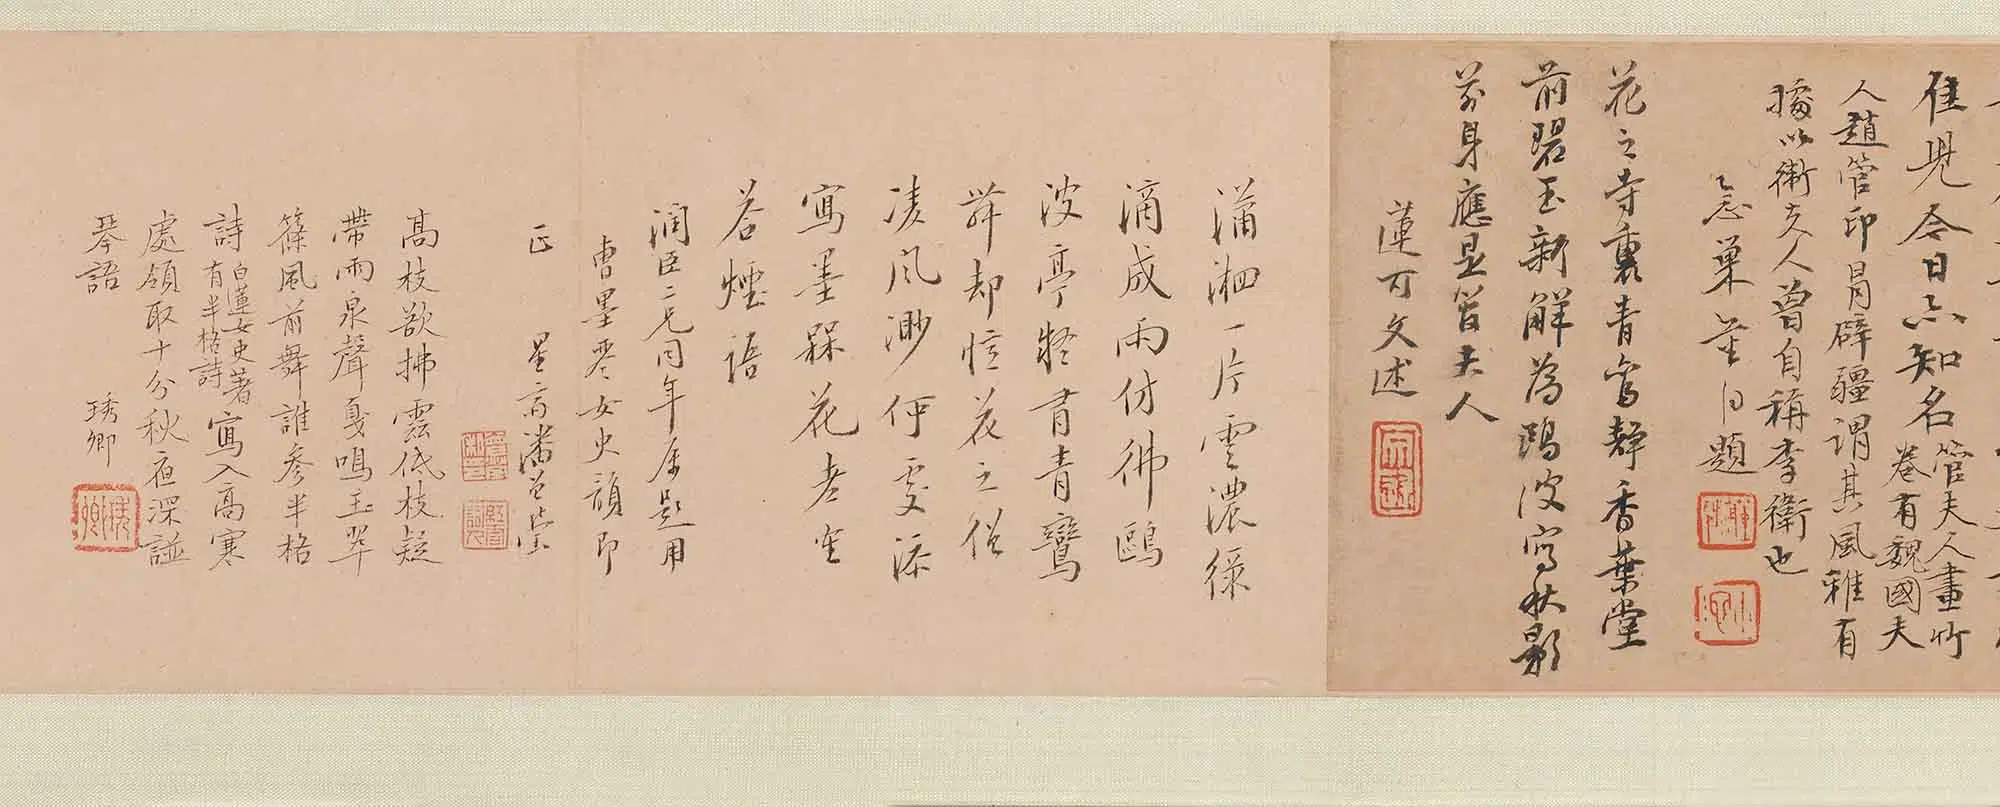 佳児今日亦知名管夫人畫竹
卷有魏國夫
人趙管印昌辟疆謂其風雅有
據以衛夫人曾自稱李衛也
忍巢 題
花之寺裏青鸞靜香葉堂
前碧玉新解為鷗波寫秋影
前身應是管夫人
蓮可文述
瀟湘一片雲濃綠
滴成雨仿彿鷗
波亭墅有青鸞
舞却憶花之僧
凌風渺何處添
寫墨槑花老坐
答煙語
潤臣二兄同年屬題用
曹墨琴女史韻即
正 星齋潘曾瑩
高枝欲拂雲低枝疑
帶雨泉聲戛鳴玉翠
篠風前舞誰參半格
詩白蓮女史著
有半格詩寫入高寒
處領取十分秋夜深
琴語 琇卿